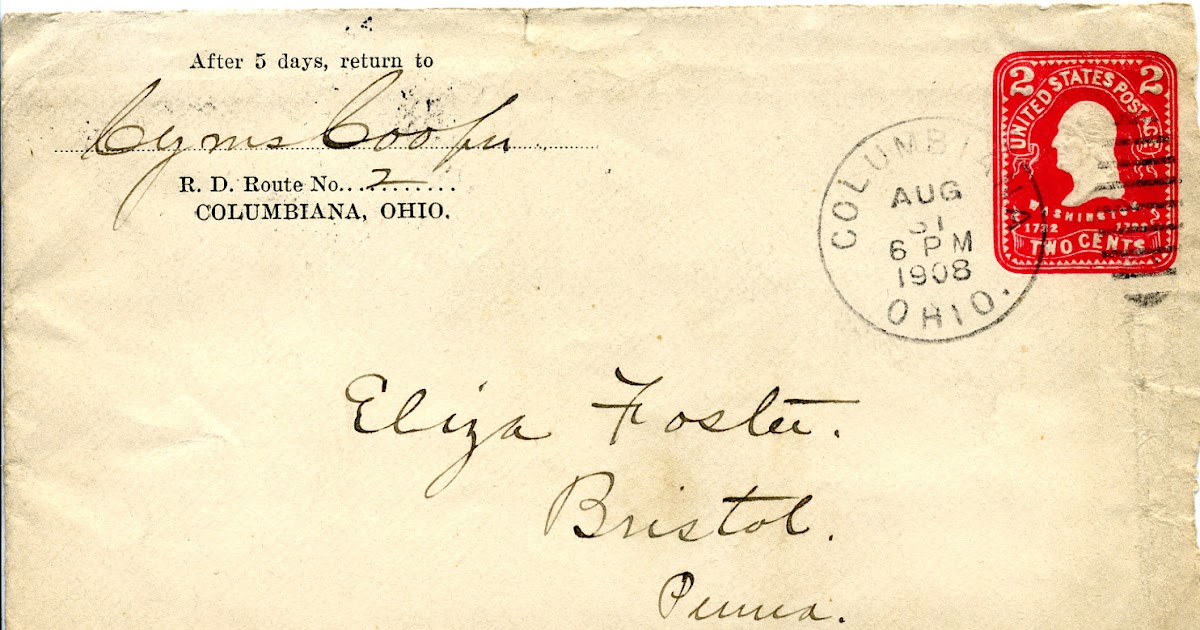 After 5 days, return to
Cyrus Cooper
R. D. Route No. 2
COLUMBIANA, OHIO.
2 2
UNITED STATES POSTAGE
WASHINGTON
1732 1799
TWO CENTS
COLUMBIANA
AUG
31
6 PM
1908
OHIO.
Eliza Foster.
Bristol.
Penna.